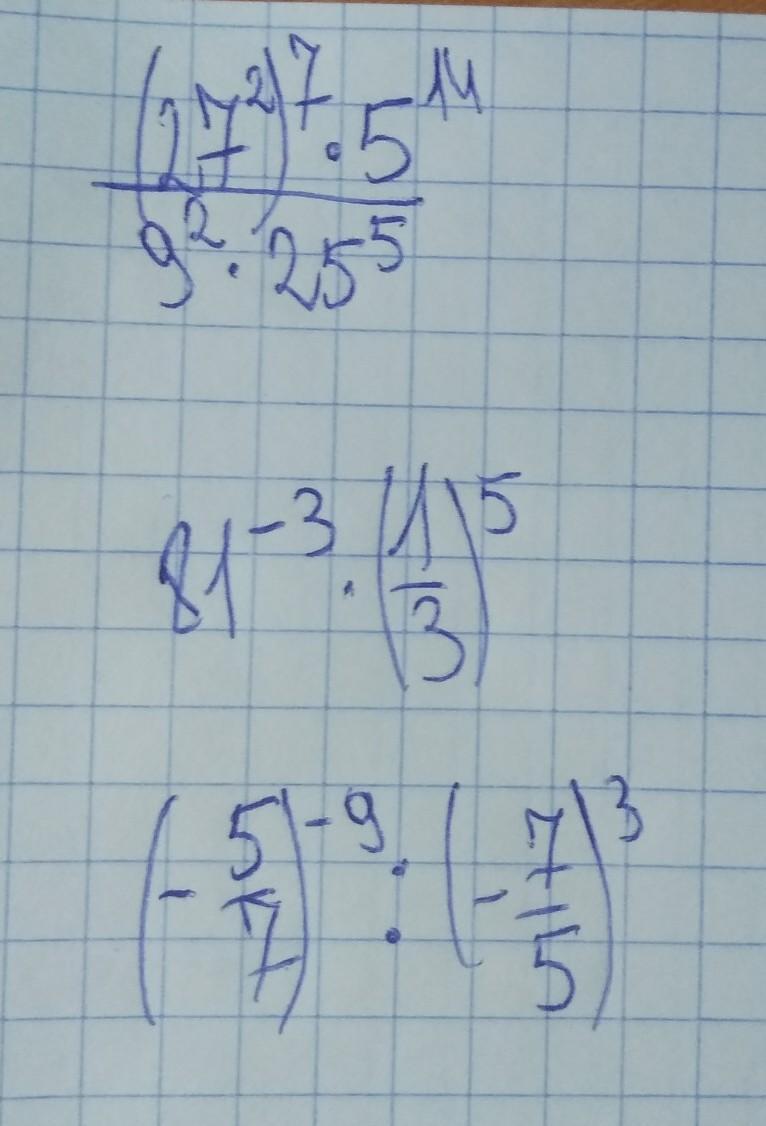 (27²)⁷ · 5¹⁴
9² · 25⁵
81⁻³ · (1/3)⁵
(- 5/7)⁻⁹ : (- 7/5)³